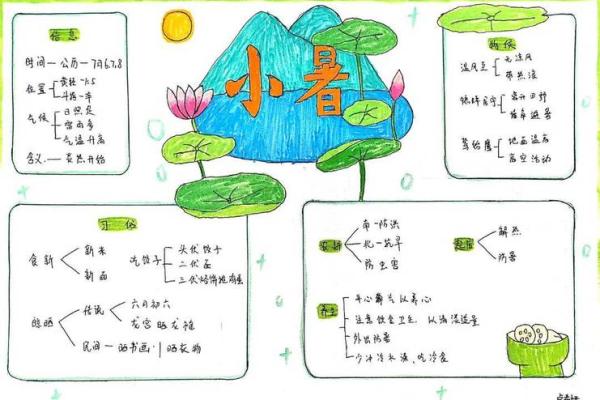 小暑
信息
时间 — 公历 — 7月6,7,8
位置
黄经
斗指
气候
日照足
雷雨多
气温升高
含义 — 炎热开始
物候
温风至
无凉风
带热浪
蟋蟀居宇
离开田野
庭院避暑
鹰始鸷
地面温高
高空活动
习俗
食新
新米
新面
吃饺子
头伏饺子
二伏面
三伏烙饼摊鸡蛋
晾晒
传说
六月初六
龙宫晒龙袍
民间 — 晒书画 晒衣物
南 — 防洪
北 — 抗旱
防虫害
解热
防暑
养生
平心静气以养心
注意饮食卫生
外出防暑
少冲冷水澡
吃冷食